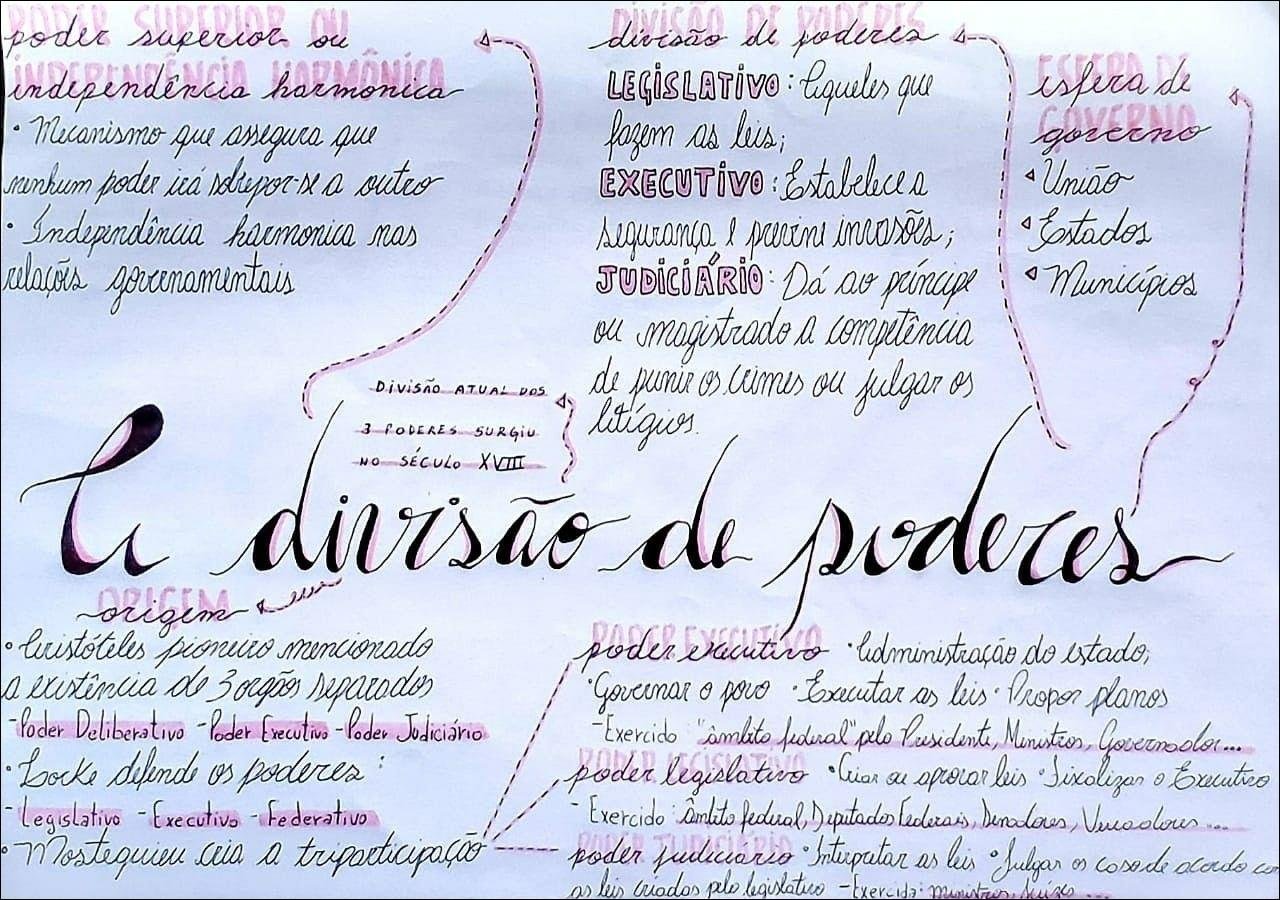 poder superior ou
independência harmônica
• Mecanismo que assegura que
nenhum poder irá sobrepor-se a outro
• Independência harmonica nas
relações governamentais
divisão de poderes
LEGISLATIVO: Aqueles que
fazem as leis;
EXECUTIVO: Estabelece a
segurança e previne invasões;
JUDICIÁRIO: Dá ao príncipe
ou magistrado a competência
de punir os crimes ou julgar os
litígios.
esfera de
governo
União
Estados
Municípios
DIVISÃO ATUAL DOS
3 PODERES SURGIU
NO SÉCULO XVIII
A divisão de poderes
origem
• Aristóteles pioneiro mencionado
a existência de 3 orgãos separados
-Poder Deliberativo -Poder Executivo -Poder Judiciário
• Locke defende os poderes:
- Legislativo - Executivo - Federativo
• Mostequieu cria a triparticipação
poder executivo • Administração do estado;
• Governar o povo • Executar as leis • Propor planos
-Exercido "âmbito federal" pelo Presidente, Ministros, Governador...
poder legislativo • Criar ou aprovar leis • Fixalizar o Executivo
- Exercido: âmbito federal, Deputados Federais, Senadores, Vereadores ...
poder judiciário • Interpretar as leis • Julgar os caso de acordo com
as leis criadas pelo legislativo - Exercida: ministros, Juízes ...